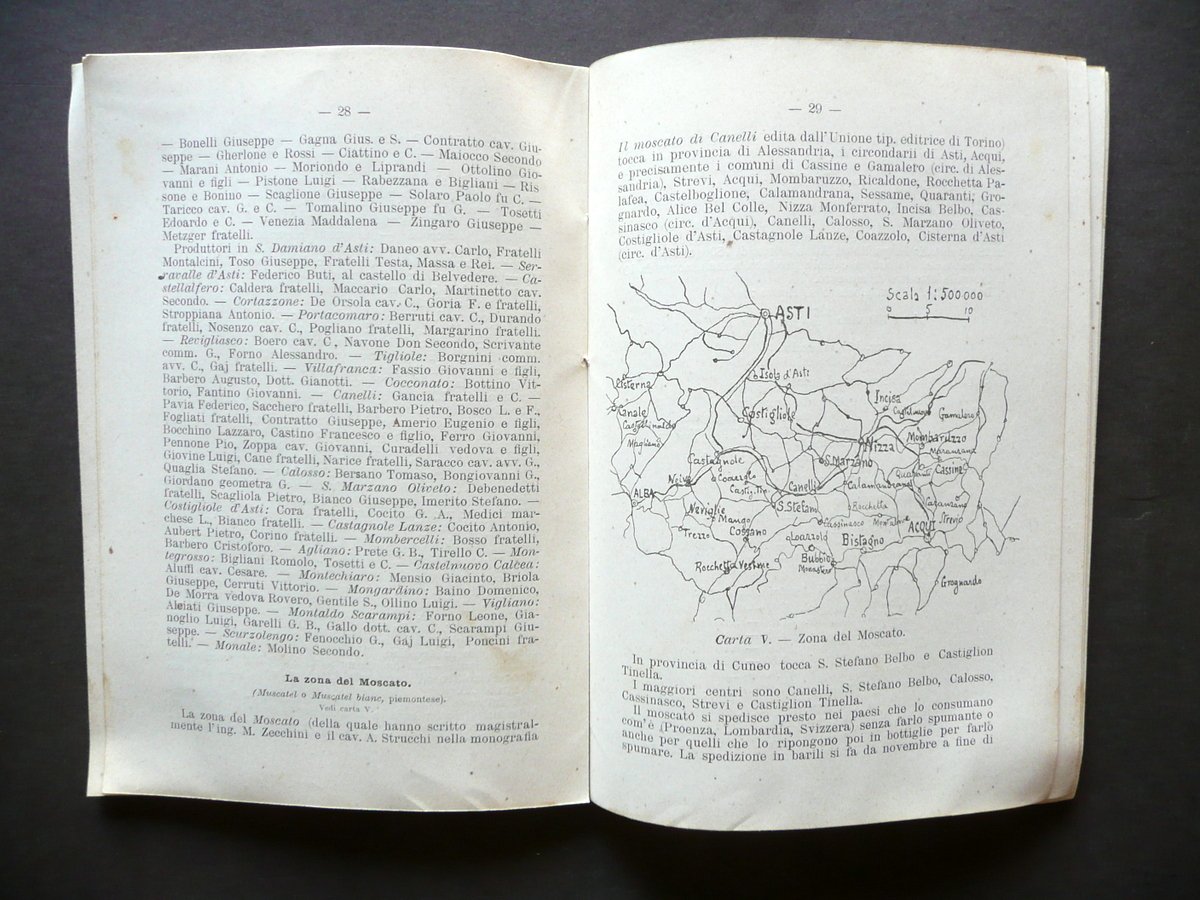 — 28 —
— Bonelli Giuseppe — Gagna Gius. e S. — Contratto cav. Giu-
seppe — Gherlone e Rossi — Ciattino e C. — Maiocco Secondo
— Marani Antonio — Moriondo e Liprandi — Ottolino Gio-
vanni e figli — Pistone Luigi — Rabezzana e Bigliani — Ris
sone e Bonino — Scaglione Giuseppe — Solaro Paolo fu C. —
Taricco cav. G. e C. — Tomalino Giuseppe fu G. — Tosetti
Edoardo e C. — Venezia Maddalena — Zingaro Giuseppe —
Metzger fratelli.
Produttori in S. Damiano d'Asti: Daneo avv. Carlo, Fratelli
Montalcini, Toso Giuseppe, Fratelli Testa, Massa e Rei. — Ser-
ravalle d'Asti: Federico Buti, al castello di Belvedere. — Ca-
stellalfero: Caldera fratelli, Maccario Carlo, Martinetto cav.
Secondo. — Cortazzone: De Orsola cav. C., Goria F. e fratelli,
Stroppiana Antonio. — Portacomaro: Berruti cav. C., Durando
fratelli, Nosenzo cav. C., Pogliano fratelli, Margarino fratelli.
— Revigliasco: Boero cav. C, Navone Don Secondo, Scrivante
comm. G., Forno Alessandro. — Tigliole: Borgnini comm.
avv. C., Gaj fratelli. — Villafranca: Fassio Giovanni e figli,
Barbero Augusto, Dott. Gianotti. — Cocconato: Bottino Vit-
torio, Fantino Giovanni. — Canelli: Gancia fratelli e C. —
Pavia Federico, Sacchero fratelli, Barbero Pietro, Bosco L. e F.,
Fogliati fratelli, Contratto Giuseppe, Amerio Eugenio e figli,
Bocchino Lazzaro, Castino Francesco e figlio, Ferro Giovanni,
Pennone Pio, Zoppa cav. Giovanni, Curadelli vedova e figli,
Giovine Luigi, Cane fratelli, Narice fratelli, Saracco cav. avv. G.,
Quaglia Stefano. — Calosso: Bersano Tomaso, Bongiovanni G.,
Giordano geometra G. — S. Marzano Oliveto: Debenedetti
fratelli, Scagliola Pietro, Bianco Giuseppe, Imerito Stefano. —
Costigliole d'Asti: Cora fratelli, Cocito G. A., Medici mar-
chese L., Bianco fratelli. — Castagnole Lanze: Cocito Antonio,
Aubert Pietro, Corino fratelli. — Mombercelli: Bosso fratelli,
Barbero Cristoforo. — Agliano: Prete G. B., Tirello C. — Mon-
tegrosso: Bigliani Romolo, Tosetti e C. — Castelnuovo Calcea:
Aluffi cav. Cesare. — Montechiaro: Mensio Giacinto, Briola
Giuseppe, Cerruti Vittorio. — Mongardino: Baino Domenico,
De Morra vedova Rovero, Gentile S., Ollino Luigi. — Vigliano:
Alciati Giuseppe. — Montaldo Scarampi: Forno Leone, Gia-
noglio Luigi, Garelli G. B., Gallo dott. cav. C., Scarampi Giu-
seppe. — Scurzolengo: Fenocchio G., Gaj Luigi, Poncini fra-
telli. — Monale: Molino Secondo.
La zona del Moscato.
(Muscatel o Muscatel bianc, piemontese).
Vedi carta V.
La zona del Moscato (della quale hanno scritto magistral-
mente l'ing. M. Zecchini e il cav. A. Strucchi nella monografia
— 29 —
Il moscato di Canelli edita dall'Unione tip. editrice di Torino)
tocca in provincia di Alessandria, i circondarii di Asti, Acqui,
e precisamente i comuni di Cassine e Gamalero (circ. di Ales-
sandria), Strevi, Acqui, Mombaruzzo, Ricaldone, Rocchetta Pa-
lafea, Castelboglione, Calamandrana, Sessame, Quaranti, Gro-
gnardo, Alice Bel Colle, Nizza Monferrato, Incisa Belbo, Cas-
sinasco (circ. d'Acqui), Canelli, Calosso, S. Marzano Oliveto,
Costigliole d'Asti, Castagnole Lanze, Coazzolo, Cisterna d'Asti
(circ. d'Asti).
Scala 1:500000
0 5 10
ASTI
Isola d'Asti
Cisterna
Incisa
Canale
Castelnuovo
Gamalero
Castellinaldo
Costigliole
Magliano
Nizza
Mombaruzzo
Maranzana
Castagnole
S. Marzano
Cassine
Quaranti
Neive
Coazzolo
Castigl. Tin.
Canelli
Calamandrana
ALBA
S. Stefano
Rocchetta
Neviglie
Mango
Cassinasco
Strevi
Trezzo
Cossano
ACQUI
Loazzolo
Bistagno
Bubbio
Monastero
Rocchetta
Vesime
Grognardo
Carta V. — Zona del Moscato.
In provincia di Cuneo tocca S. Stefano Belbo e Castiglion
Tinella.
I maggiori centri sono Canelli, S. Stefano Belbo, Calosso,
Cassinasco, Strevi e Castiglion Tinella.
Il moscato si spedisce presto nei paesi che lo consumano
com'è (Proenza, Lombardia, Svizzera) senza farlo spumante o
anche per quelli che lo ripongono poi in bottiglie per farlo
spumare. La spedizione in barili si fa da novembre a fine di